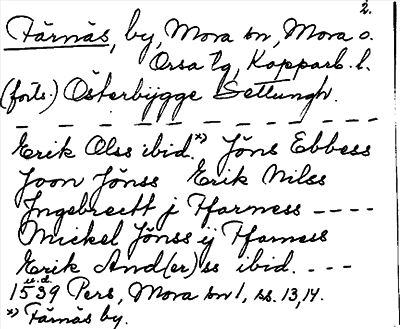 2.
Färnäs, by, Mora sn, Mora o.
Orsa tg, Kopparb. l.
(forts.) Österbygge Settungh.
— — — — — — — — — — —
Erik Olss ibid.*) Jöns Ebbess
Joon Jönss Erik Nilss
Ingebrectt j Ffarness - - - -
Mickel Jönss ij Ffarness
Erik And(er)ss ibid. - - -
u.d.
1539 Pers, Mora sn 1, ss. 13, 14.
*) Färnäs by.